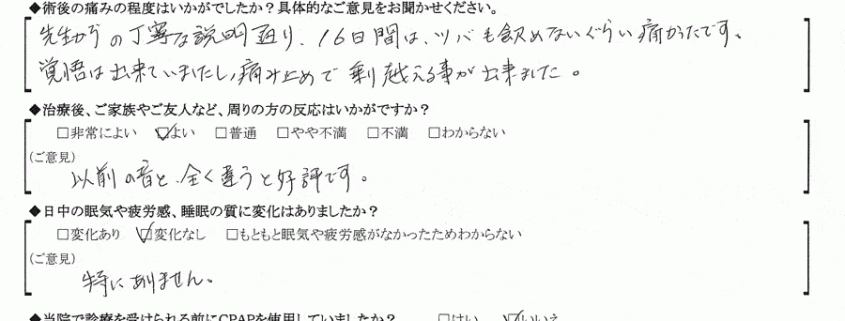 ◆術後の痛みの程度はいかがでしたか？具体的なご意見をお聞かせください。
先生からの丁寧な説明通り、16日間は、ツバも飲めないぐらい痛かったです。
覚悟は出来ていましたし、痛み止めで乗り越える事が出来ました。
◆治療後、ご家族やご友人など、周りの方の反応はいかがですか？
□非常によい ☑よい □普通 □やや不満 □不満 □わからない
(ご意見)
以前の音と、全く違うと好評です。
◆日中の眠気や疲労感、睡眠の質に変化はありましたか？
□変化あり ☑変化なし □もともと眠気や疲労感がなかったためわからない
(ご意見)
特にありません。
◆当院で診療を受けられる前にCPAPを使用していましたか？ □はい ☑いいえ